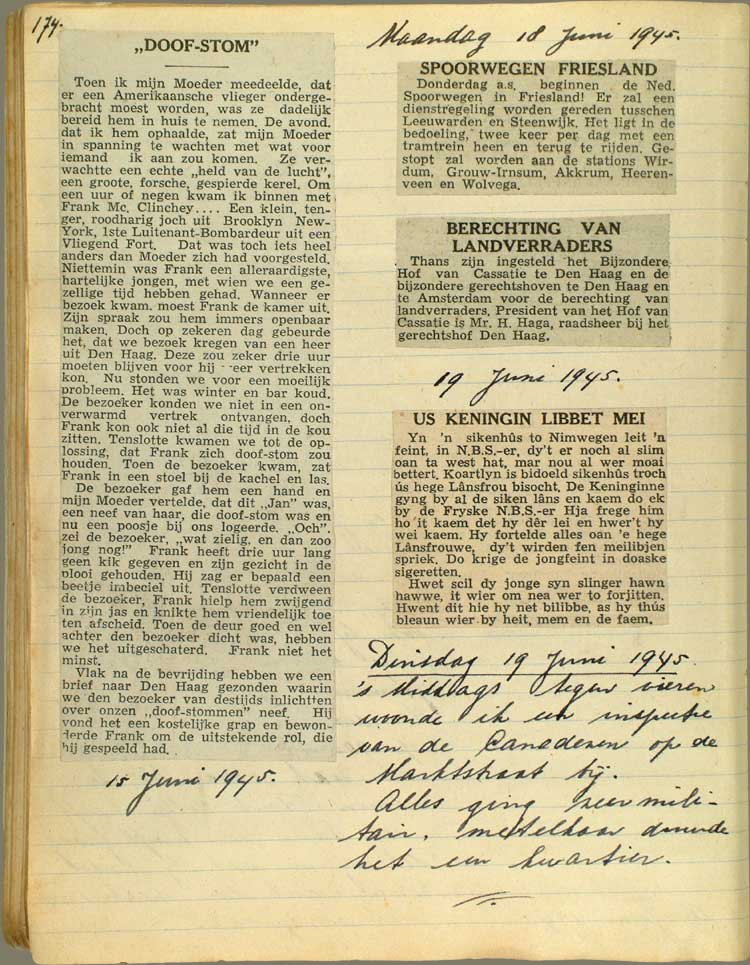 174.
„DOOF-STOM”
Toen ik mijn Moeder meedeelde, dat
er een Amerikaansche vlieger onderge-
bracht moest worden, was ze dadelijk
bereid hem in huis te nemen. De avond,
dat ik hem ophaalde, zat mijn Moeder
in spanning te wachten met wat voor
iemand ik aan zou komen. Ze ver-
wachtte een echte „held van de lucht”,
een groote, forsche, gespierde kerel. Om
een uur of negen kwam ik binnen met
Frank Mc. Clinchey.... Een klein, ten-
ger, roodharig joch uit Brooklyn New-
York, 1ste Luitenant-Bombardeur uit een
Vliegend Fort. Dat was toch iets heel
anders dan Moeder zich had voorgesteld.
Niettemin was Frank een alleraardigste,
hartelijke jongen, met wien we een ge-
zellige tijd hebben gehad. Wanneer er
bezoek kwam. moest Frank de kamer uit.
Zijn spraak zou hem immers openbaar
maken. Doch op zekeren dag gebeurde
het, dat we bezoek kregen van een heer
uit Den Haag. Deze zou zeker drie uur
moeten blijven voor hij eer vertrekken
kon. Nu stonden we voor een moeilijk
probleem. Het was winter en bar koud.
De bezoeker konden we niet in een on-
verwarmd vertrek ontvangen, doch
Frank kon ook niet al die tijd in de kou
zitten. Tenslotte kwamen we tot de op-
lossing, dat Frank zich doof-stom zou
houden. Toen de bezoeker kwam, zat
Frank in een stoel bij de kachel en las.
De bezoeker gaf hem een hand en
mijn Moeder vertelde, dat dit „Jan” was,
een neef van haar, die doof-stom was en
nu een poosje bij ons logeerde. „Och”.
zei de bezoeker, „wat zielig, en dan zoo
jong nog!” Frank heeft drie uur lang
geen kik gegeven en zijn gezicht in de
plooi gehouden. Hij zag er bepaald een
beetje imbeciel uit. Tenslotte verdween
de bezoeker, Frank hielp hem zwijgend
in zijn jas en knikte hem vriendelijk toe
ten afscheid. Toen de deur goed en wel
achter den bezoeker dicht was, hebben
we het uitgeschaterd. Frank niet het
minst.
Vlak na de bevrijding hebben we een
brief naar Den Haag gezonden waarin
we den bezoeker van destijds inlichtten
over onzen „doof-stommen” neef. Hij
vond het een kostelijke grap en bewon-
derde Frank om de uitstekende rol, die
hij gespeeld had.
15 Juni 1945.
Maandag 18 Juni 1945.
SPOORWEGEN FRIESLAND
Donderdag a.s. beginnen de Ned.
Spoorwegen in Friesland! Er zal een
dienstregeling worden gereden tusschen
Leeuwarden en Steenwijk. Het ligt in de
bedoeling, twee keer per dag met een
tramtrein heen en terug te rijden. Ge-
stopt zal worden aan de stations Wir-
dum, Grouw-Irnsum, Akkrum, Heeren-
veen en Wolvega.
BERECHTING VAN
LANDVERRADERS
Thans zijn ingesteld het Bijzondere
Hof van Cassatie te Den Haag en de
bijzondere gerechtshoven te Den Haag en
te Amsterdam voor de berechting van
landverraders. President van het Hof van
Cassatie is Mr. H. Haga, raadsheer bij het
gerechtshof Den Haag.
19 Juni 1945.
US KENINGIN LIBBET MEI
Yn 'n sikenhûs to Nimwegen leit 'n
feint, in N.B.S.-er, dy't er noch al slim
oan ta west hat, mar nou al wer moai
bettert. Koartlyn is bidoeld sikenhûs troch
ús hege Lânsfrou bisocht. De Keninginne
gyng by al de siken lâns en kaem do ek
by de Fryske N.B.S.-er Hja frege him
ho 't kaem det hy dêr lei en hwer't hy
wei kaem. Hy fortelde alles oan 'e hege
Lânsfrouwe, dy't wirden fen meilibjen
spriek. Do krige de jongfeint in doaske
sigeretten.
Hwet scil dy jonge syn slinger hawn
hawwe, it wier om nea wer to forjitten.
Hwent dit hie hy net bilibbe, as hy thús
bleaun wier by heit, mem en de faem.
Dinsdag 19 Juni 1945
's Middags tegen vieren
woonde ik een inspectie
van de Canadezen op de
Marktstraat bij.
Alles ging zeer mili-
tair, met elkaar duurde
het een kwartier.